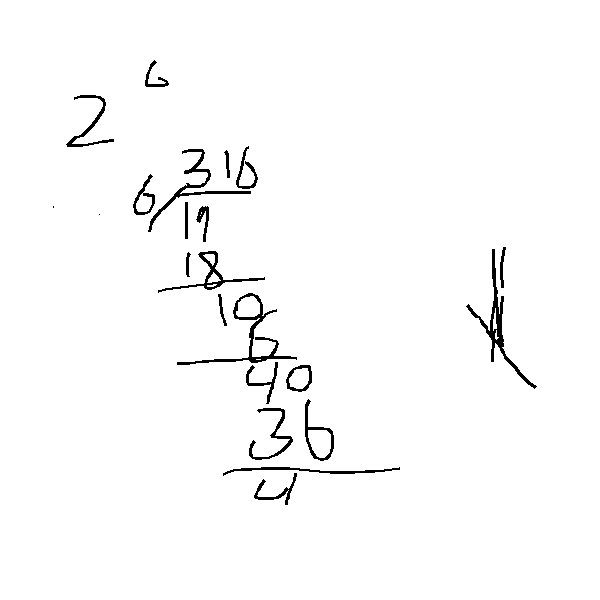 2 6
316
6 19
18
10
6
40
36
4